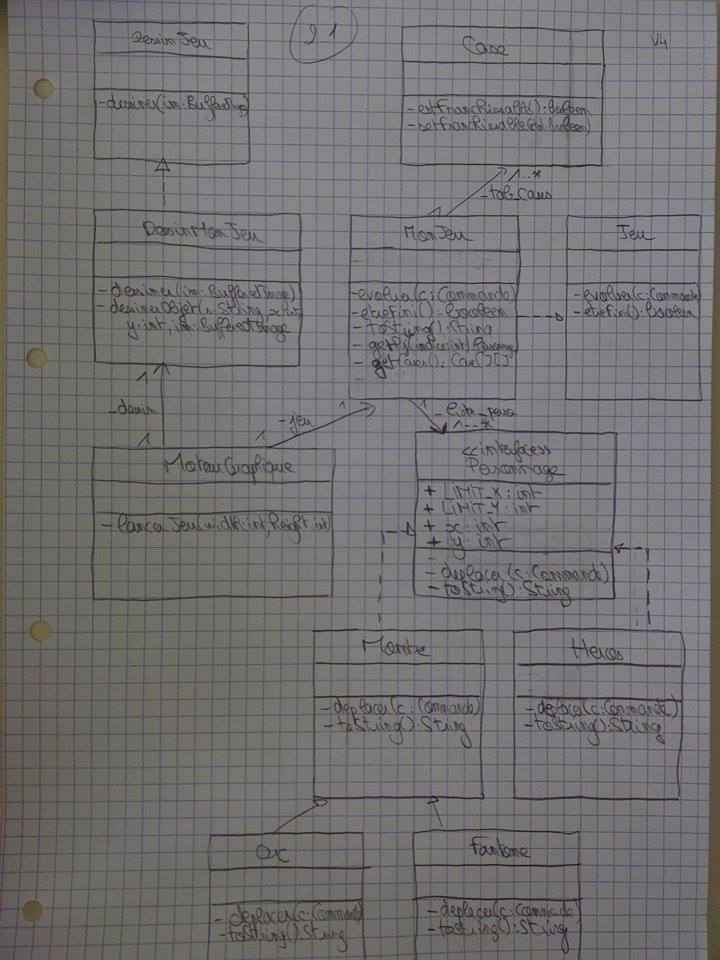 21
V4
DessinJeu
-dessiner(im:BufferedImage)
Case
-estFranchissable():boolean
-setFranchissable(etat:boolean)
1..*
-tab_cases
1
DessinMonJeu
-dessiner(im:BufferedImage)
-dessinerObjet(s:String,x:int
y:int,im:BufferedImage
MonJeu
-
-evoluer(c:Commande)
-etreFini():boolean
-toString():String
-getPj(indice:int):Personnage
-getCases():Case[][]
-
Jeu
-evoluer(c:Commande)
-etreFini():boolean
1
-dessin
1
-jeu
1
1
1
-liste_perso
1..*
MoteurGraphique
-lancerJeu(width:int,height:int)
<<interface>>
Personnage
+ LIMIT_X:int
+ LIMIT_Y:int
+ x:int
+ y:int
-
-deplacer(c:Commande)
-toString():String
Monstre
-deplacer(c:Commande)
-toString():String
Heros
-deplacer(c:Commande)
-toString():String
Orc
-deplacer(c:Commande)
-toString():String
Fantome
-deplacer(c:Commande)
-toString():String